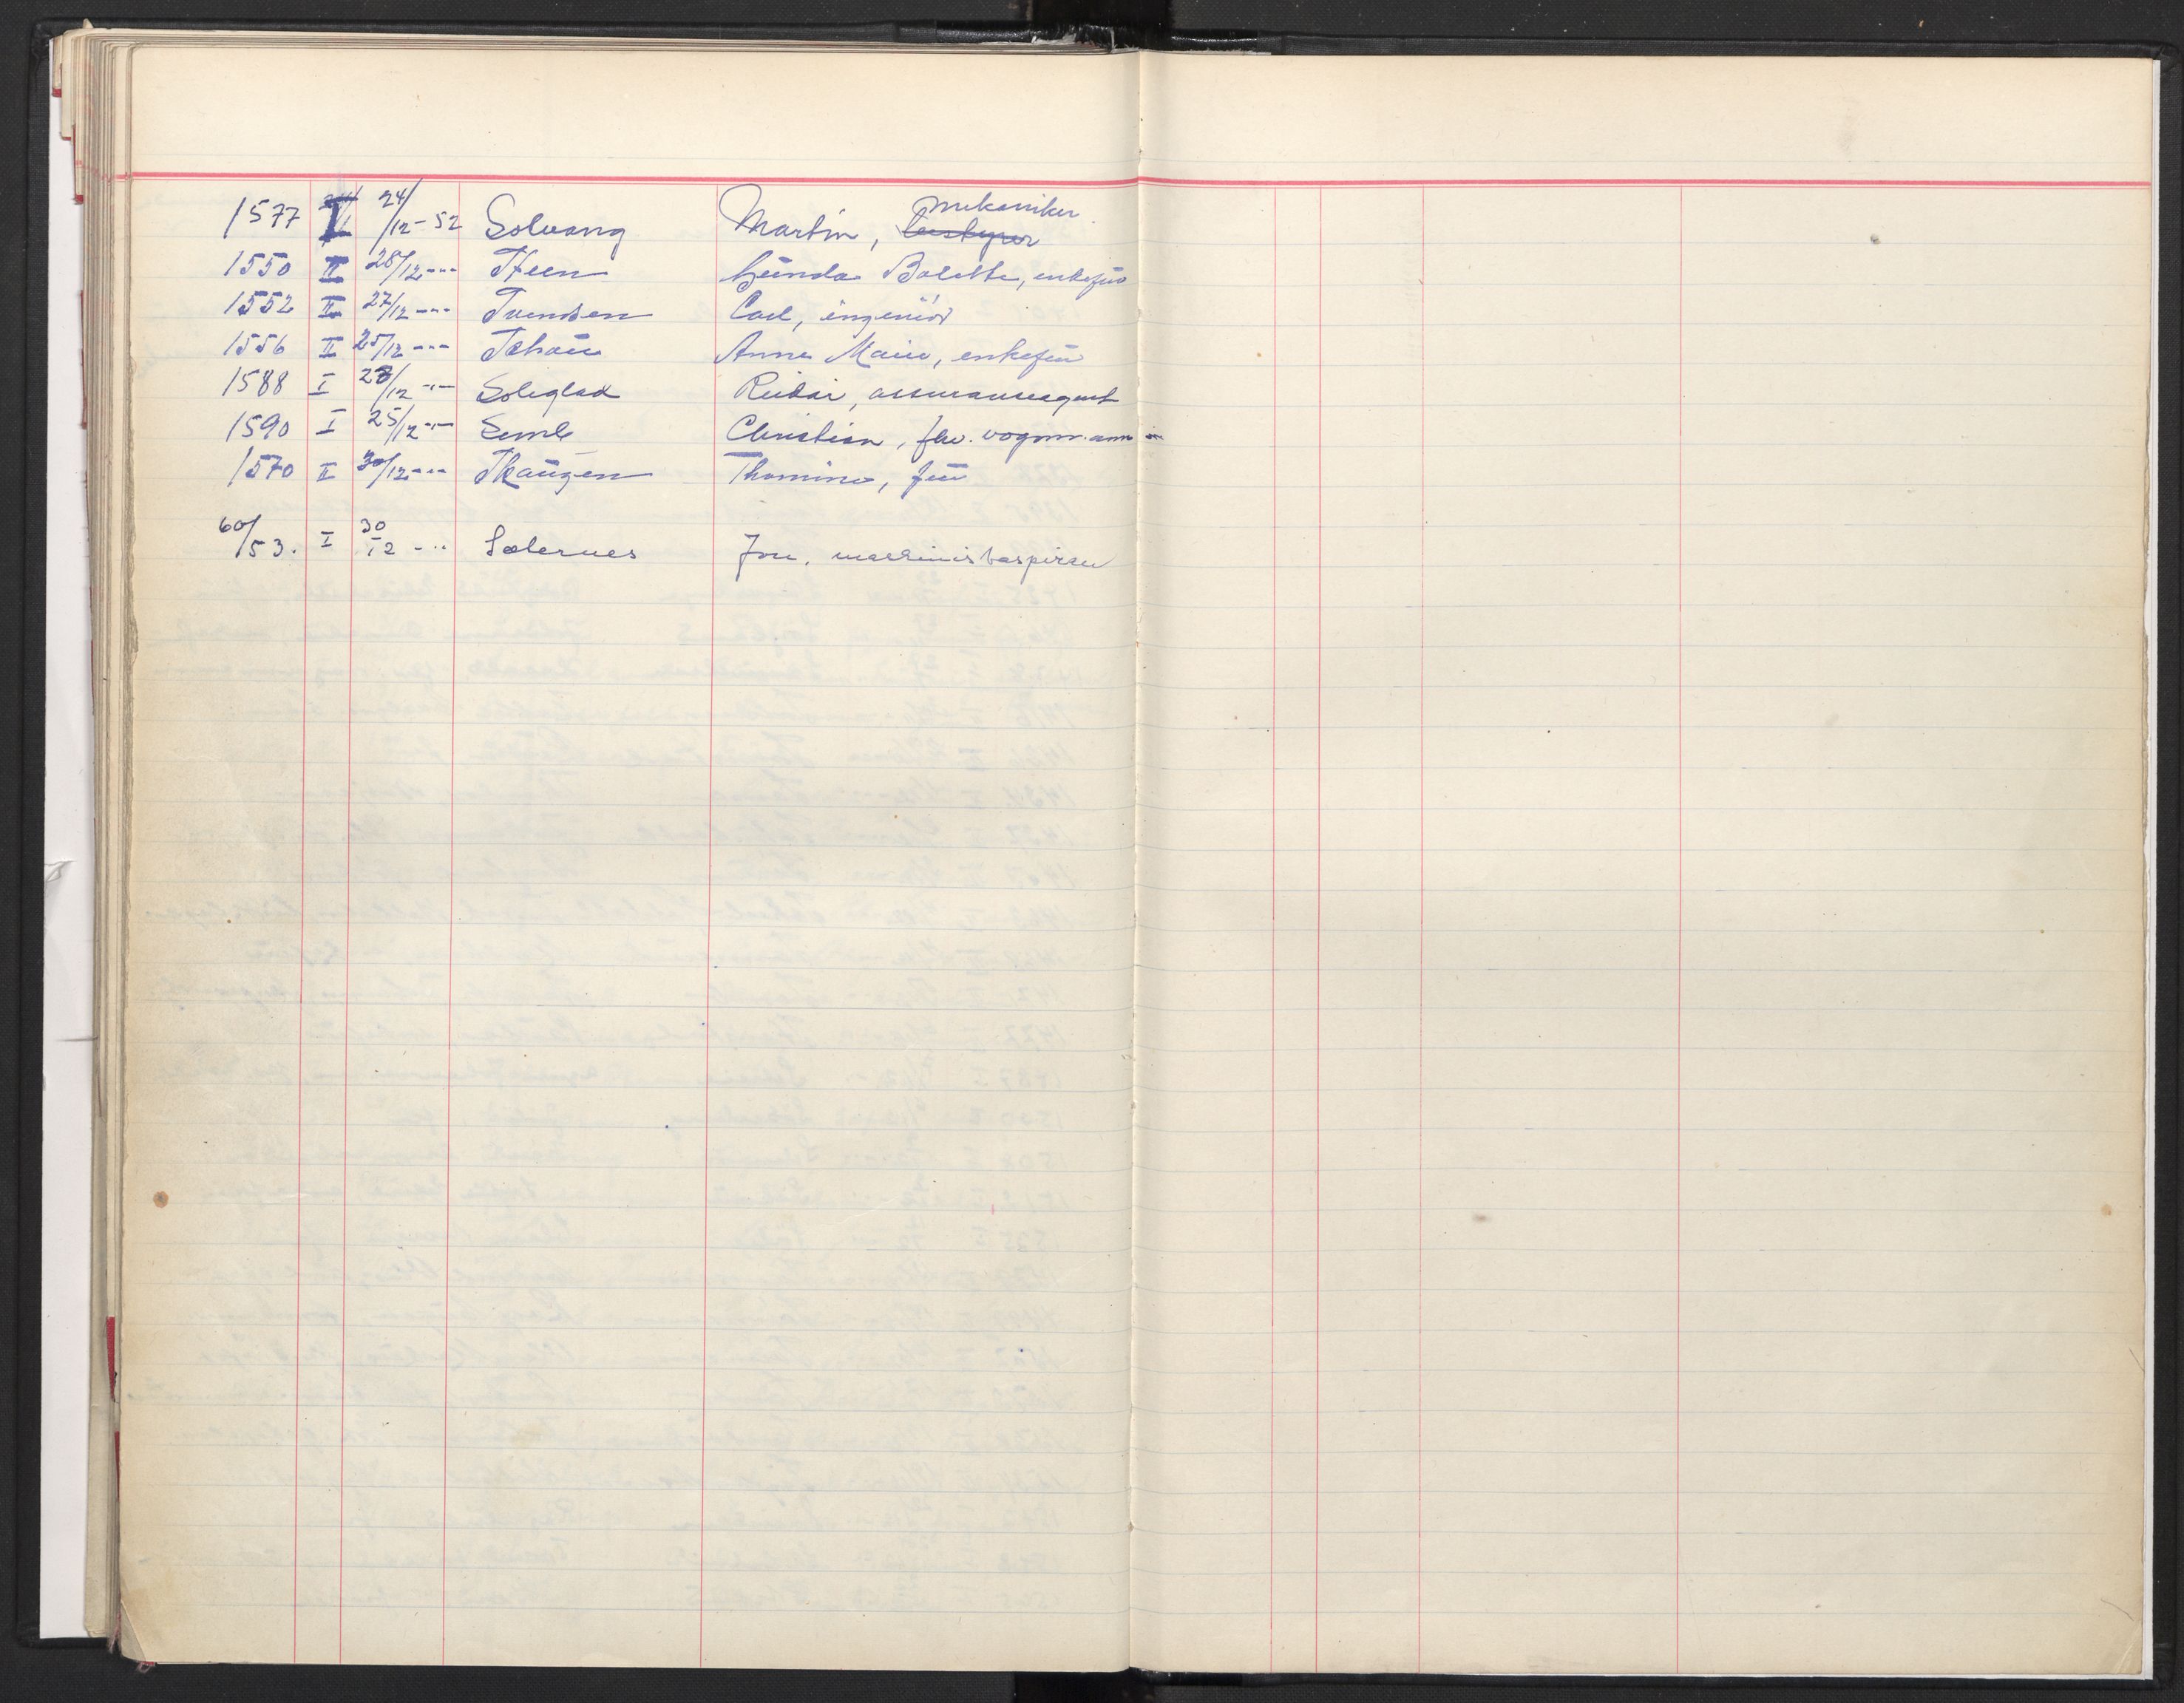 1577 I 24/12-52 Solvang Martin, bestyrer mekaniker
1550 II 28/12 --- Steen Gunda Bolette, enkefru
1552 II 27/12 --- Svendsen Carl, ingeniør
1556 II 25/12 --- Schau Anne Marie, enkefru
1588 I 28/12 -"- Soleglad Reidar, assuranseagent
1590 I 25/12 -"- Semb Christian, fhv.
1570 II 30/12 --- Skaugen Thomine, fru
60/53. I 30/12 -"- Solernes Jon, maskinistaspiran